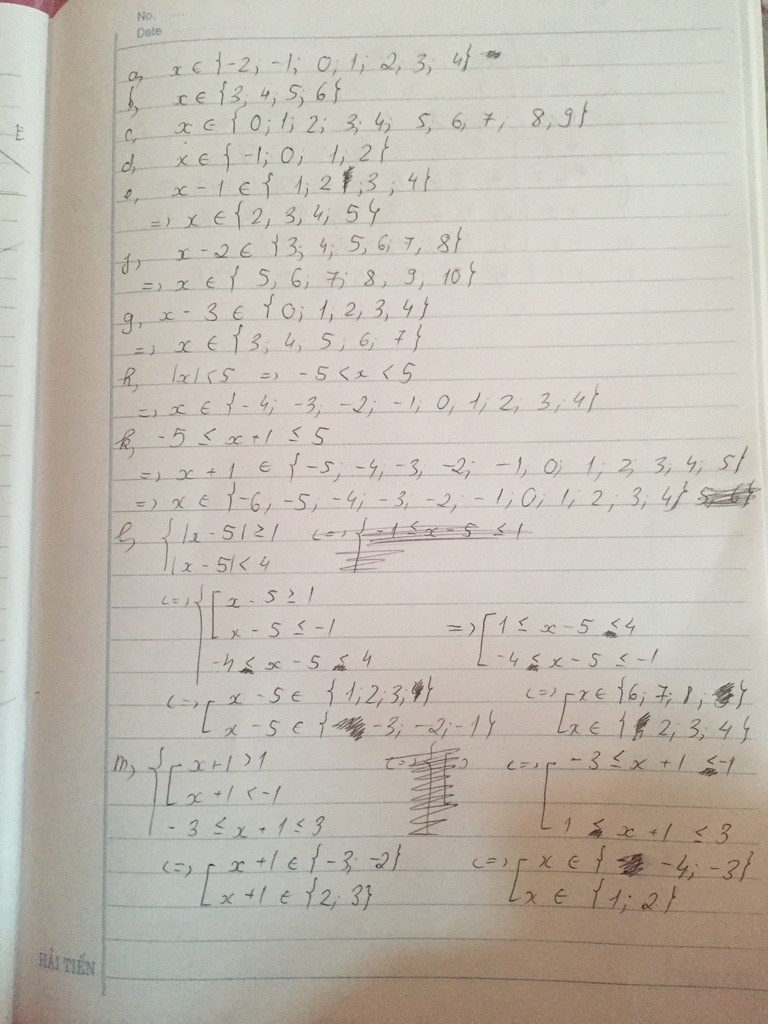 No.
Date
a, x ∈ {-2; -1; 0; 1; 2; 3; 4}
b, x ∈ {3; 4; 5; 6}
c, x ∈ {0; 1; 2; 3; 4; 5, 6, 7, 8, 9}
d, x ∈ {-1; 0; 1; 2}
e, x - 1 ∈ {1; 2; 3; 4}
=> x ∈ {2, 3, 4, 5}
f, x - 2 ∈ {3; 4; 5, 6, 7, 8}
=> x ∈ {5, 6, 7; 8, 9, 10}
g, x - 3 ∈ {0; 1, 2, 3, 4}
=> x ∈ {3; 4, 5; 6; 7}
h, |x| < 5 => -5 < x < 5
=> x ∈ {-4; -3; -2; -1; 0, 1, 2, 3, 4}
k, -5 ≤ x+1 ≤ 5
=> x + 1 ∈ {-5; -4, -3; -2; -1, 0; 1; 2, 3, 4, 5}
=> x ∈ {-6, -5, -4; -3, -2, -1, 0, 1, 2, 3, 4}
l, { |x - 5| ≥ 1 <=> { -1 ≤ x - 5 ≤ 1
|x - 5| < 4
<=> { [ x - 5 ≥ 1
x - 5 ≤ -1 => [ 1 ≤ x - 5 ≤ 4
-4 ≤ x - 5 ≤ 4 -4 ≤ x - 5 ≤ -1
<=> [ x - 5 ∈ {1; 2; 3} <=> [ x ∈ {6; 7; 8}
x - 5 ∈ {-3; -2; -1} x ∈ {2, 3, 4}
m, { [ x+1 > 1 <=> [ -3 ≤ x + 1 ≤ -1
x + 1 < -1
-3 ≤ x + 1 ≤ 3 1 ≤ x + 1 ≤ 3
<=> [ x+1 ∈ {-3; -2} <=> [ x ∈ {-4; -3}
x+1 ∈ {2; 3} x ∈ {1; 2}
HẢI TIẾN